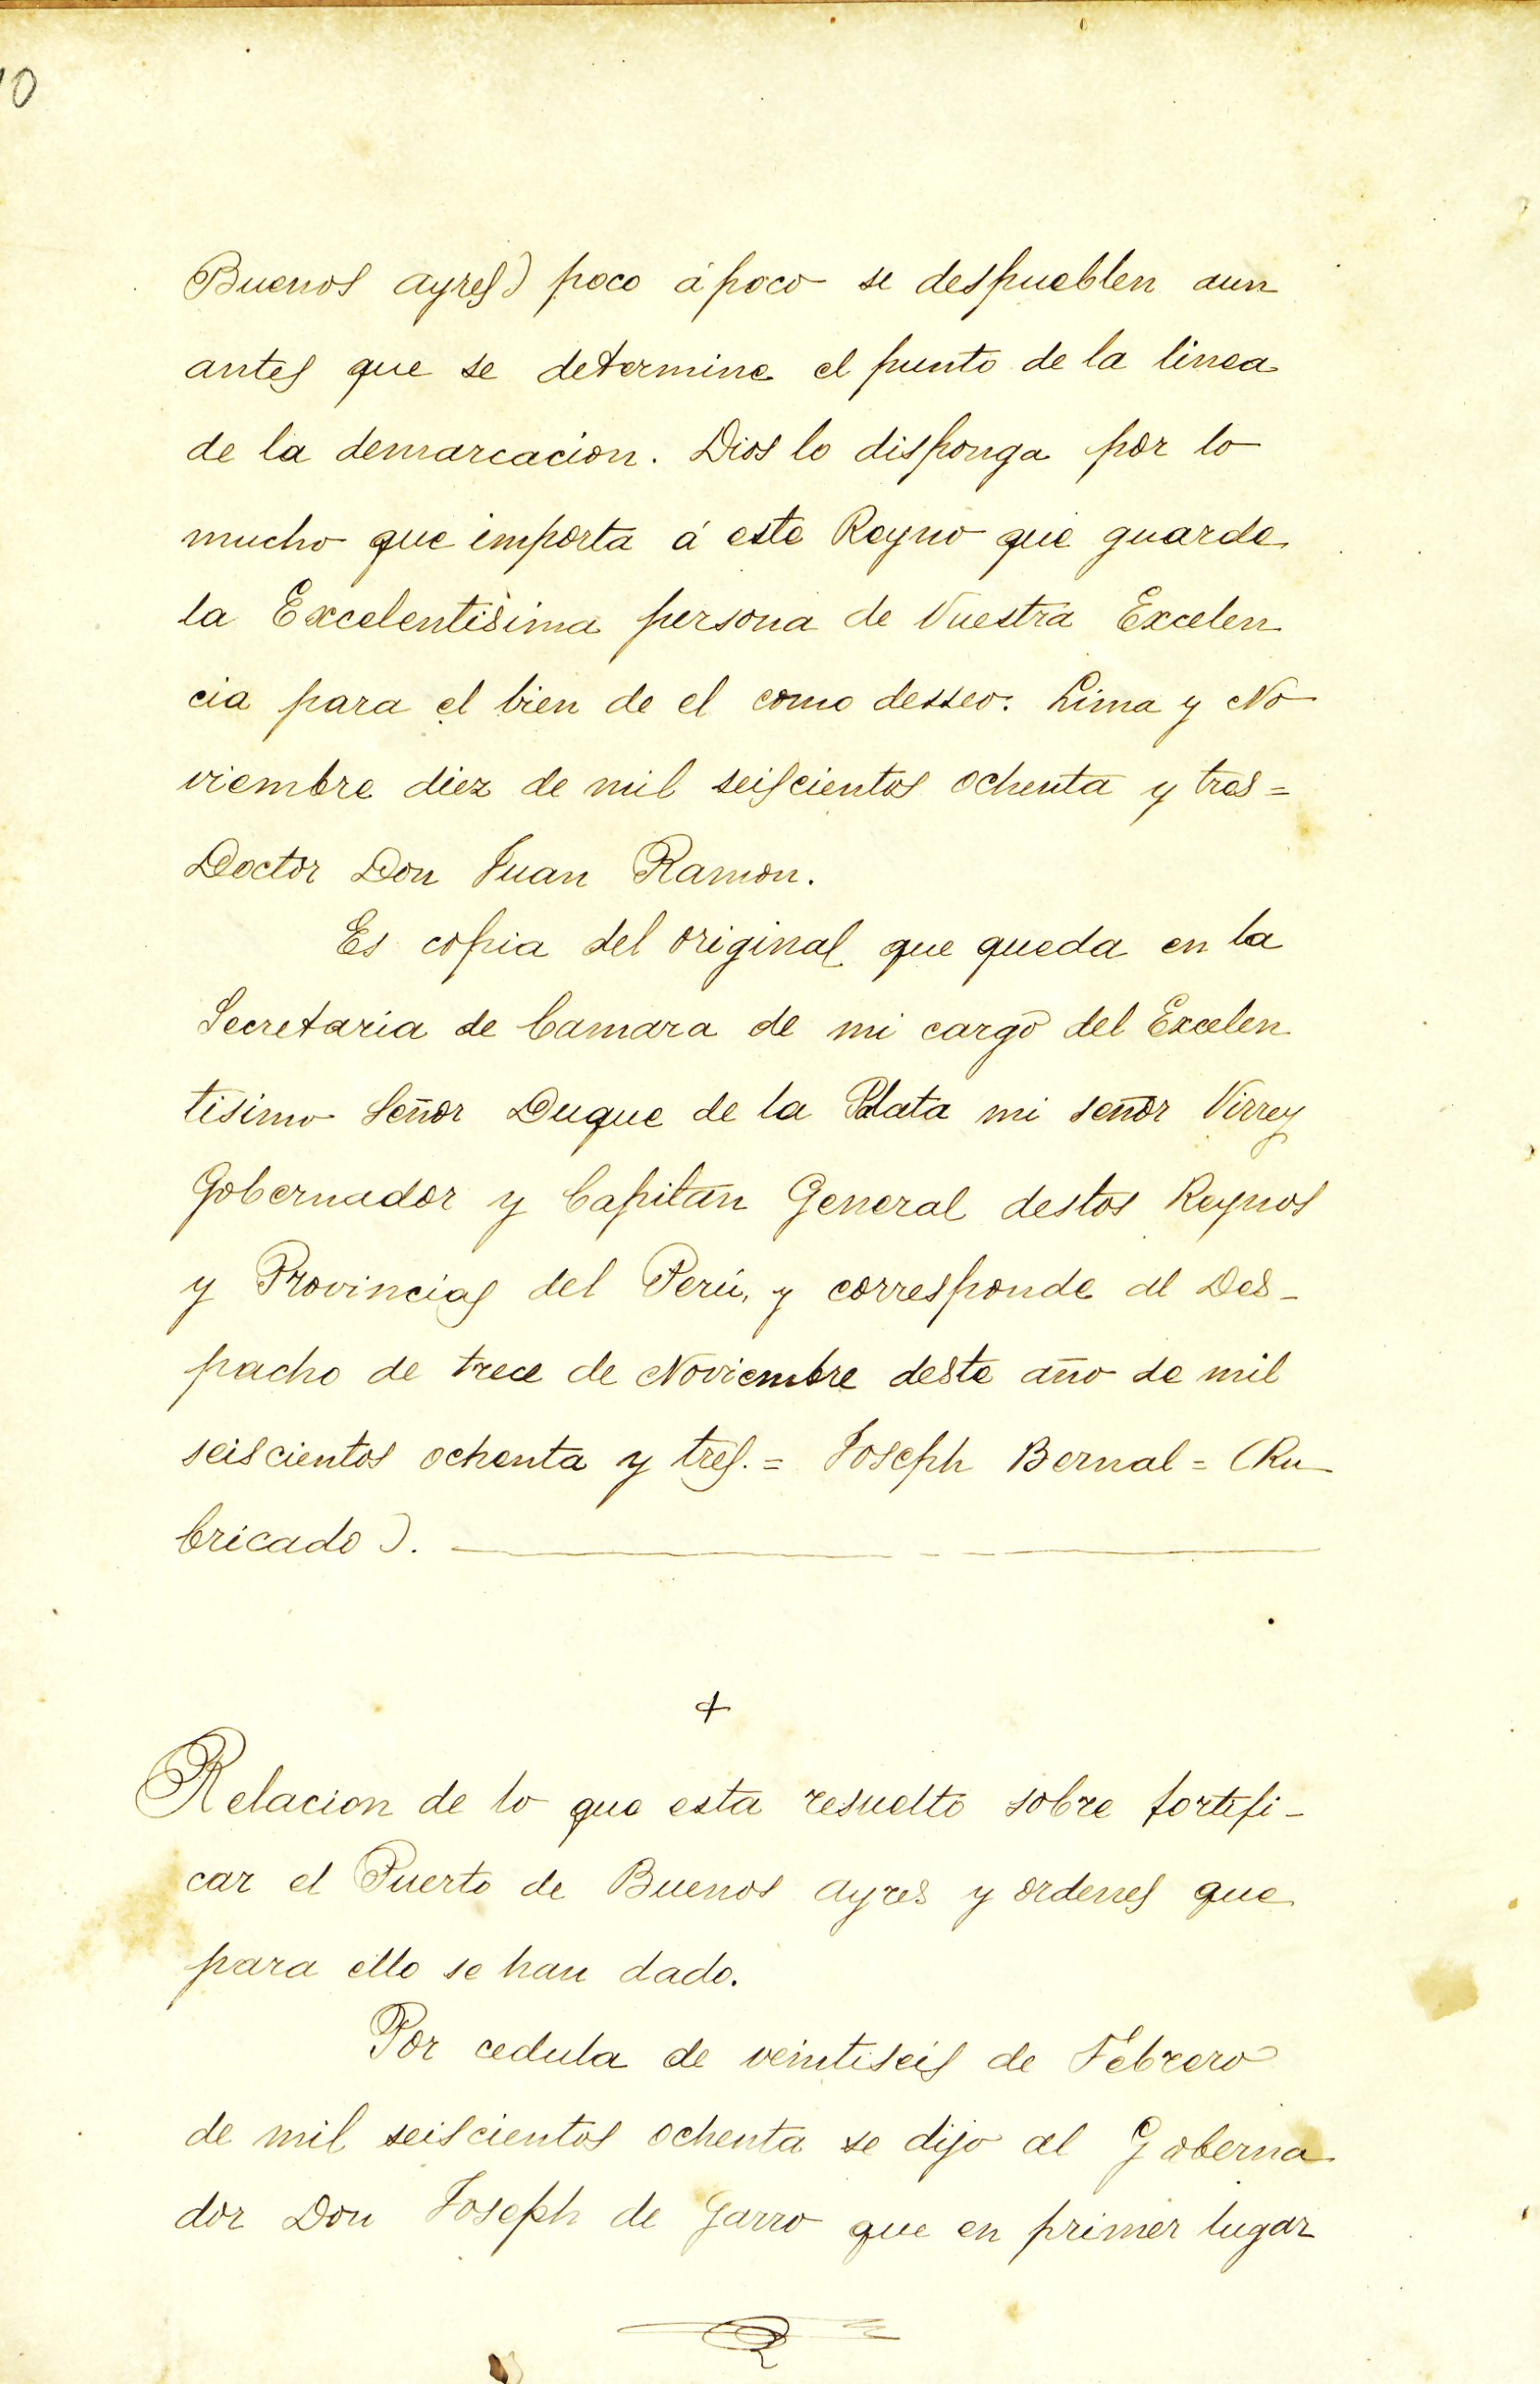 10
Buenos Ayres) poco á poco se despueblen aun
antes que se determine el punto de la linea
de la demarcacion. Dios lo disponga por lo
mucho que importa á este Reyno que guarde
la Excelentisima persona de Vuestra Excelen
cia para el bien de el como desseo. Lima y No
viembre diez de mil seiscientos ochenta y tres=
Doctor Don Juan Ramon.
Es copia del original que queda en la
Secretaria de Camara de mi cargo del Excelen
tisimo Señor Duque de la Plata mi señor Virrey
Gobernador y Capitan General destos Reynos
y Provincias del Perú, y corresponde al Des-
pacho de trece de Noviembre deste año de mil
seiscientos ochenta y tres.= Joseph Bernal= (Ru
bricado).
+
Relacion de lo que esta resuelto sobre fortifi-
car el Puerto de Buenos Ayres y ordenes que
para ello se han dado.
Por cedula de veintiseis de Febrero
de mil seiscientos ochenta se dijo al Goberna
dor Don Joseph de Garro que en primer lugar